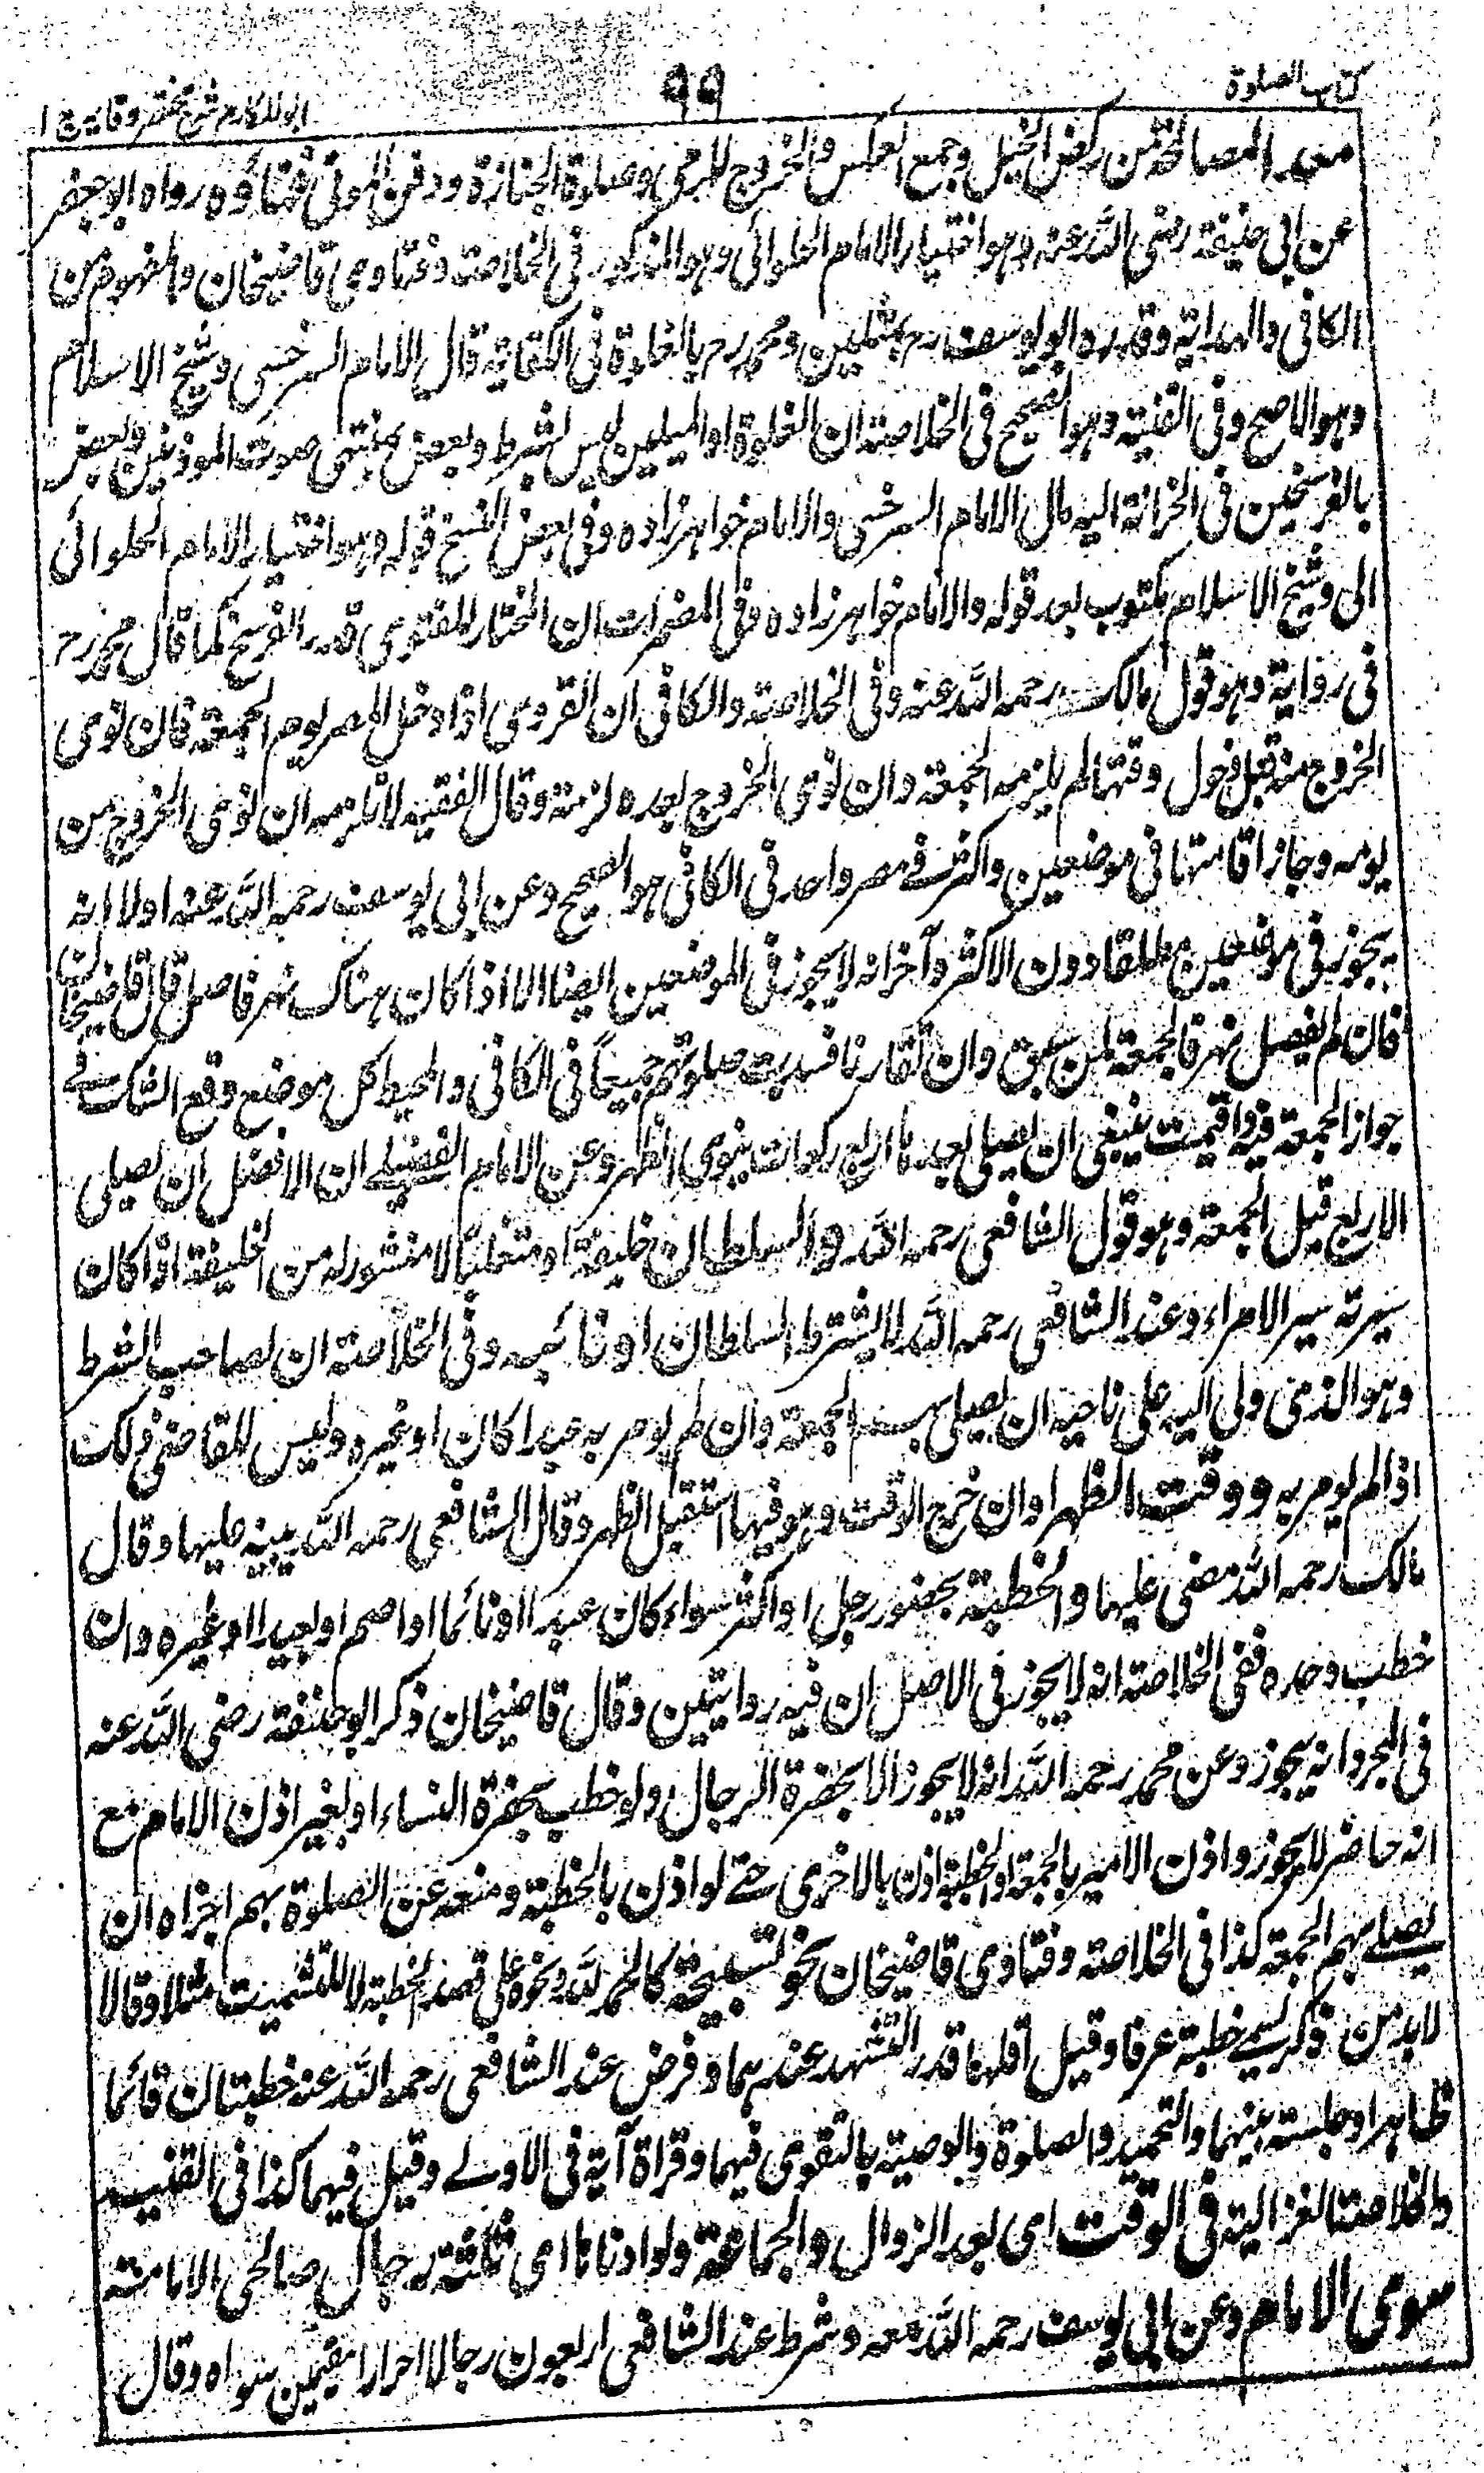 كتاب الصلوة
٩٩
ابو المكارم شرح مختصر وقايه ج ١
المصالحة من ركض الخيل وجمع العساكر والخروج للرمي وصلوة الجنازة ودفن الموتى فناؤه رواه ابو جعفر
عن ابى حنيفة رضى الله عنه وهو اختيار الامام الحلوائى وهو المذكور فى الخلاصة وفتاوى قاضيخان والمفهوم من
الكافى والهداية وقدره ابو يوسف رح بميلين ومحمد رح بالغلوة فى الكفاية قال الامام السرخسى وشيخ الاسلام
وهو الاصح وفى القنية وهو الصحيح فى الخلاصة ان الغلوة او الميلين ليس بشرط وبعض بمنتهى صوت الموذنين وبعض
بالفرسخين فى الخزانة اليه مال الامام السرخسى والامام خواهرزاده وفى بعض النسخ قوله وهو اختيار الامام الحلوائى
الى وشيخ الاسلام مكتوب بعد قوله والامام خواهرزاده وفى المضمرات ان المختار للفتوى قدر الفرسخ كما قال محمد رح
فى رواية وهو قول مالك رحمه الله عنه وفى الخلاصة والكافى ان القروى اذا دخل المصر يوم الجمعة فان نوى
الخروج منه قبل دخول وقتها لم يلزمه الجمعة وان نوى الخروج بعده لزمته وقال الفقيه لا تلزمه ان نوى الخروج من
يومه وجاز اقامتها فى موضعين واكثر فے مصر واحد فى الكافى هو الصحيح وعن ابى يوسف رحمه الله عنه اولا انه
يجوز فى موضعين مطلقا دون الاكثر وآخرا انه لا يجوز فى الموضعين ايضا الا اذا كان هناك نهر فاصل قال قاضيخان
فان لم يفصل نهر فالجمعة لمن سبق وان تقارنا فسدت صلوتهم جميعاً فى الكافى والمحيط كل موضع وقع الشك فے
جواز الجمعة فيه واقيمت ينبغى ان يصلى بعدها اربع ركعات ينوى الظهر وعن الامام الفضلے ان الافضل ان يصلى
الاربع قبل الجمعة وهو قول الشافعى رحمه الله والسلطان خليفة او متغلبا لا منشور له من الخليفة اذا كان
سيرته سير الامراء وعند الشافعى رحمه الله لا يشترط السلطان او نائبه وفى الخلاصة ان لصاحب الشرط
وهو الذى ولى اليه على ناحية ان يصلى بهم الجمعة وان لم يومر به عبدا كان او غيره وليس للقاضى ذلك
اذا لم يومر به ووقت الظهر وان خرج الوقت وهو فيها استقبل الظهر وقال الشافعى رحمه الله يبنيه عليها وقال
مالك رحمه الله مضى عليها والخطبة بحضور رجل او اكثر سواء كان عبدا او نائما او اصم او بعيدا او غيره وان
خطب وحده ففى الخلاصة انه لا يجوز فى الاصل ان فيه روايتين وقال قاضيخان ذكر ابو حنيفة رضى الله عنه
فى المجرد انه يجوز وعن محمد رحمه الله انه لا يجوز الا بحضرة الرجال ولو خطب بحضرة النساء او بغير اذن الامام مع
انه حاضر لا يجوز واذن الامير بالجمعة او الخطبة اذن بالاخرى حتے لو اذن بالخطبة ومنعه عن الصلوة بهم اجزاه ان
يصلے بهم الجمعة كذا فى الخلاصة وفتاوى قاضيخان بنحو تسبيحة كالحمد لله ونحوه على قصد الخطبة لا للتشميت مثلا وقالا
لا بد من ذكر يسمے خطبة عرفا وقيل اقلها قدر التشهد عندهما وفرض عند الشافعى رحمه الله عنه خطبتان قائما
ظاهرا وجلسة بينهما والتحميد والصلوة والوصية بالتقوى فيهما وقراة آية فى الاولے وقيل فيهما كذا فى القنية
والخلاصة الغزالية فى الوقت اى بعد الزوال والجماعة ولو ادناها اى ثلثة رجال صالحى الامامة
سوى الامام وعن ابى يوسف رحمه الله معه وشرط عند الشافعى اربعون رجالا احرارا مقيمين سواه وقال